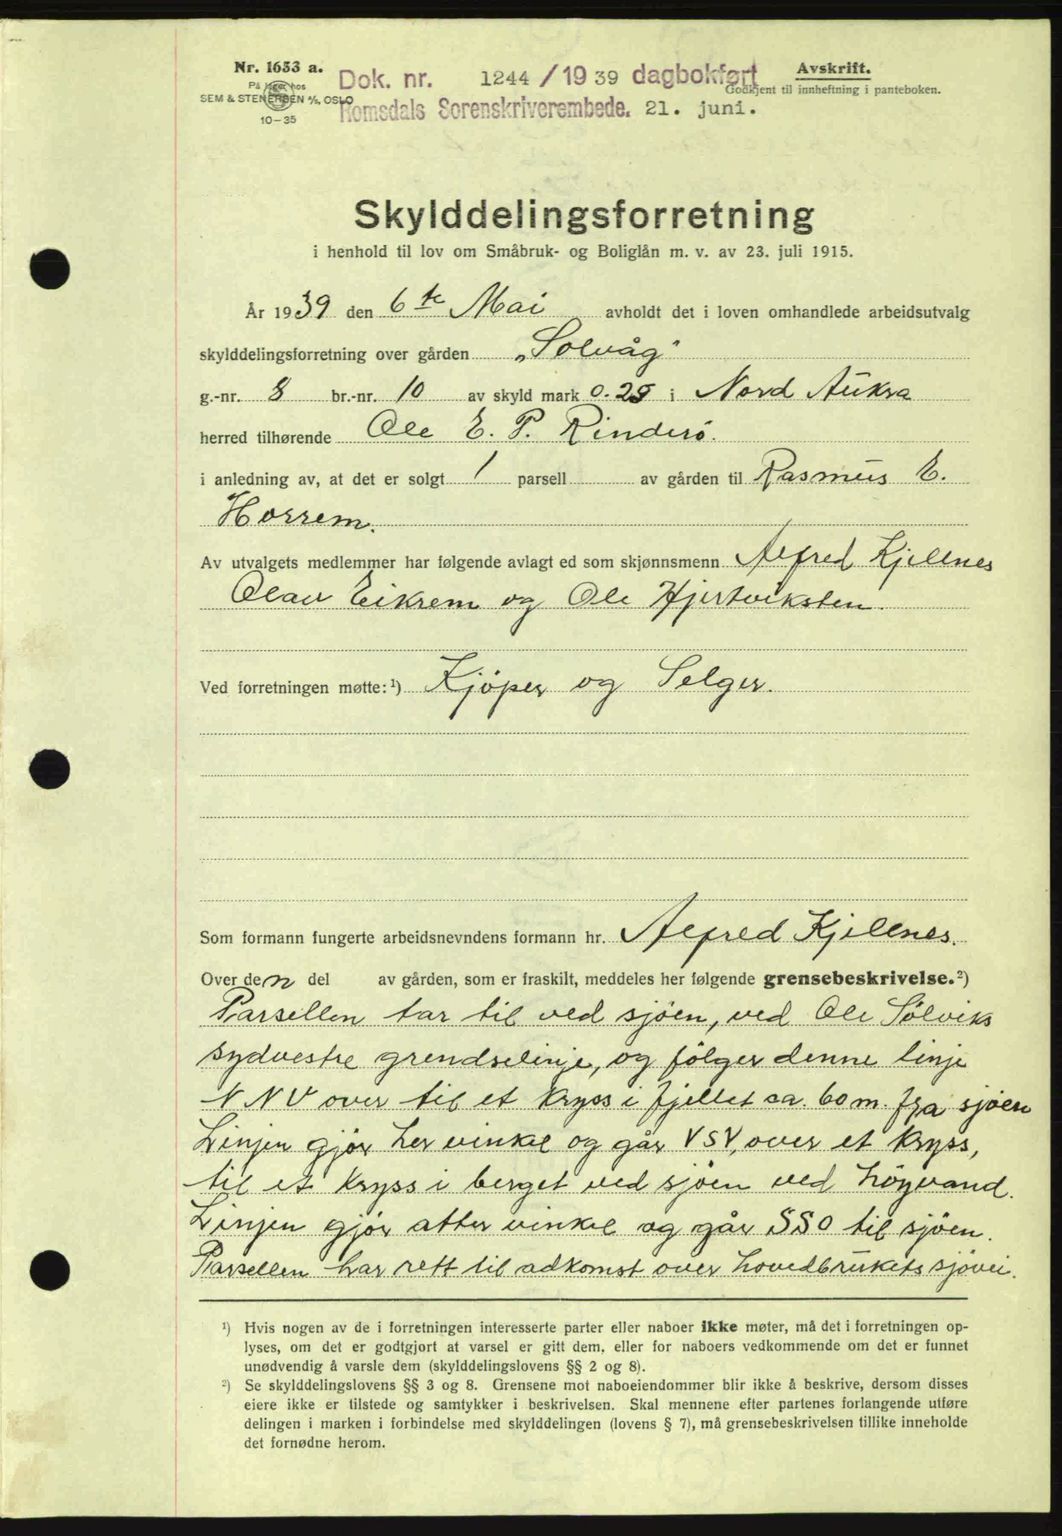 Nr. 1653 a.
På lager hos
SEM & STENERSEN A/S, OSLO
10-35
Dok. nr. 1244/1939 dagbokført
Romsdals Sorenskriverembede. 21. juni.
Avskrift.
Godkjent til innheftning i panteboken.
Skylddelingsforretning
i henhold til lov om Småbruk- og Boliglån m. v. av 23. juli 1915.
År 1939 den 6te Mai avholdt det i loven omhandlede arbeidsutvalg
skylddelingsforretning over gården „Solvåg"
g.-nr. 8 br.-nr. 10 av skyld mark 0.29 i Nord Aukra
herred tilhørende Ole E. P. Rinderö.
i anledning av, at det er solgt 1 parsell av gården til Rasmus E.
Horrem.
Av utvalgets medlemmer har følgende avlagt ed som skjønnsmenn Alfred Kjellnes
Olav Eikrem og Ole Hjertviksten.
Ved forretningen møtte:¹) Kjöper og Selger.
Som formann fungerte arbeidsnevndens formann hr. Alfred Kjellnes.
Over den del av gården, som er fraskilt, meddeles her følgende grensebeskrivelse.²)
Parsellen tar til ved sjöen, ved Ole Sølviks
sydvestre grendselinje, og fölger denne linje
NNV over til et kryss i fjellet ca. 60 m. fra sjöen
Linjen gjör her vinkel og går VSV, over et kryss,
til et kryss i berget ved sjöen ved höyvand.
Linjen gjör atter vinkel og går SSO til sjöen.
Parsellen har rett til adkomst over hovedbrukets sjövei.
¹) Hvis nogen av de i forretningen interesserte parter eller naboer ikke møter, må det i forretningen op-
lyses, om det er godtgjort at varsel er gitt dem, eller for naboers vedkommende om det er funnet
unødvendig å varsle dem (skylddelingslovens §§ 2 og 8).
²) Se skylddelingslovens §§ 3 og 8. Grensene mot naboeiendommer blir ikke å beskrive, dersom disses
eiere ikke er tilstede og samtykker i beskrivelsen. Skal mennene efter partenes forlangende utføre
delingen i marken i forbindelse med skylddelingen (lovens § 7), må grensebeskrivelsen tillike inneholde
det fornødne herom.